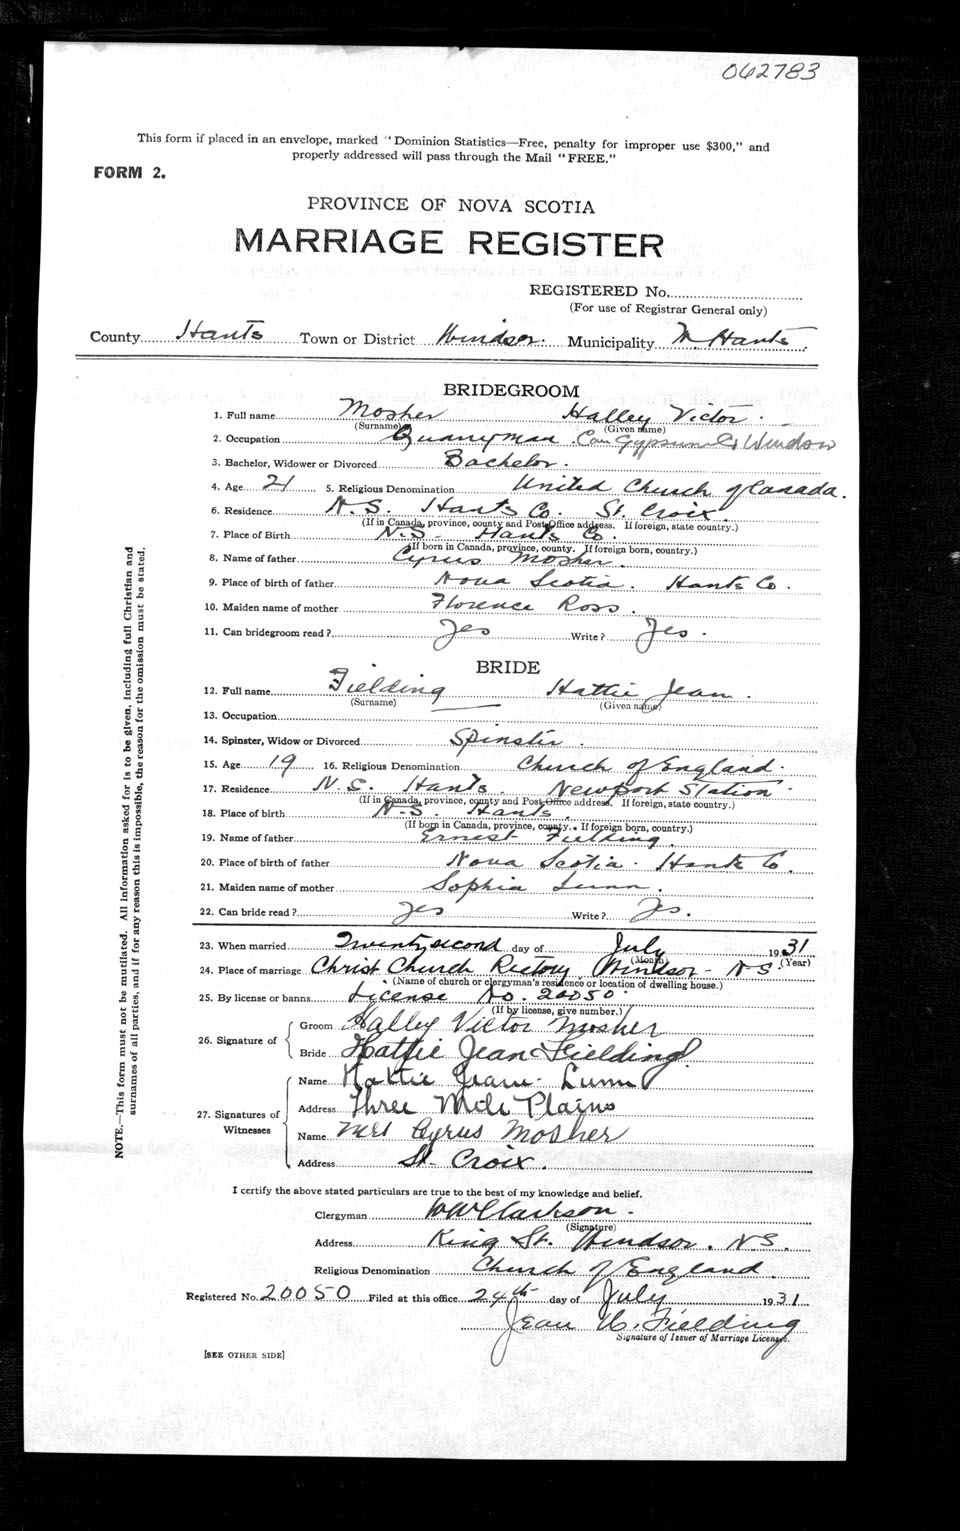 062783
This form if placed in an envelope, marked "Dominion Statistics—Free, penalty for improper use $300," and
properly addressed will pass through the Mail "FREE."
FORM 2.
PROVINCE OF NOVA SCOTIA
MARRIAGE REGISTER
REGISTERED No.
(For use of Registrar General only)
County Hants Town or District Windsor. Municipality W. Hants.
BRIDEGROOM
1. Full name Mosher Halley Victor.
(Surname) (Given name)
2. Occupation Quarryman Can Gypsum Co Windsor
3. Bachelor, Widower or Divorced Bachelor.
4. Age 21 5. Religious Denomination United Church of Canada.
6. Residence N.S. Hants Co. St. Croix.
(If in Canada, province, county and Post Office address. If foreign, state country.)
7. Place of Birth N.S. Hants Co.
(If born in Canada, province, county. If foreign born, country.)
8. Name of father Cyrus Mosher.
9. Place of birth of father Nova Scotia. Hants Co.
10. Maiden name of mother Florence Ross.
11. Can bridegroom read? Yes Write? Yes.
BRIDE
12. Full name Fielding Hattie Jean.
(Surname) (Given name)
13. Occupation
14. Spinster, Widow or Divorced Spinster.
15. Age 19 16. Religious Denomination Church of England.
17. Residence N.S. Hants. Newport Station.
(If in Canada, province, county and Post Office address. If foreign, state country.)
18. Place of birth N.S. Hants.
(If born in Canada, province, county. If foreign born, country.)
19. Name of father Ernest Fielding.
20. Place of birth of father Nova Scotia. Hants Co.
21. Maiden name of mother Sophia Lunn.
22. Can bride read? Yes Write? Yes.
23. When married Twenty second day of July 1931
(Month) (Year)
24. Place of marriage Christ Church Rectory, Windsor - N S
(Name of church or clergyman's residence or location of dwelling house.)
25. By license or banns License No. 20050.
(If by license, give number.)
26. Signature of
Groom Halley Victor Mosher
Bride Hattie Jean Fielding
27. Signatures of Witnesses
Name Hattie Jean Lunn
Address Three Mile Plains
Name Mrs Cyrus Mosher
Address St. Croix.
I certify the above stated particulars are true to the best of my knowledge and belief.
Clergyman W W Clarkson.
(Signature)
Address King St. Windsor. N S.
Religious Denomination Church of England.
Registered No. 20050 Filed at this office 24th day of July 1931
Jean Fielding
Signature of Issuer of Marriage Licenses.
[SEE OTHER SIDE]
NOTE.—This form must not be mutilated. All information asked for is to be given, including full Christian and
surnames of all parties, and if for any reason this is impossible, the reason for the omission must be stated.